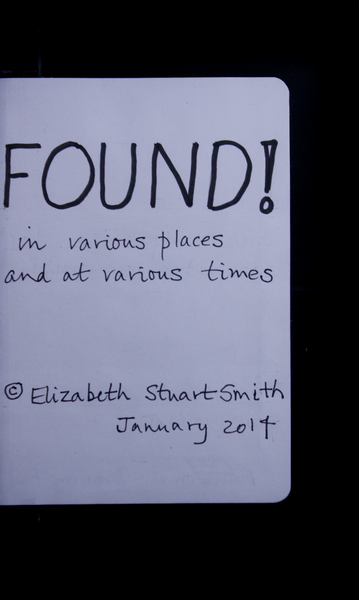 FOUND!
in various places
and at various times
© Elizabeth Stuart Smith
January 2014